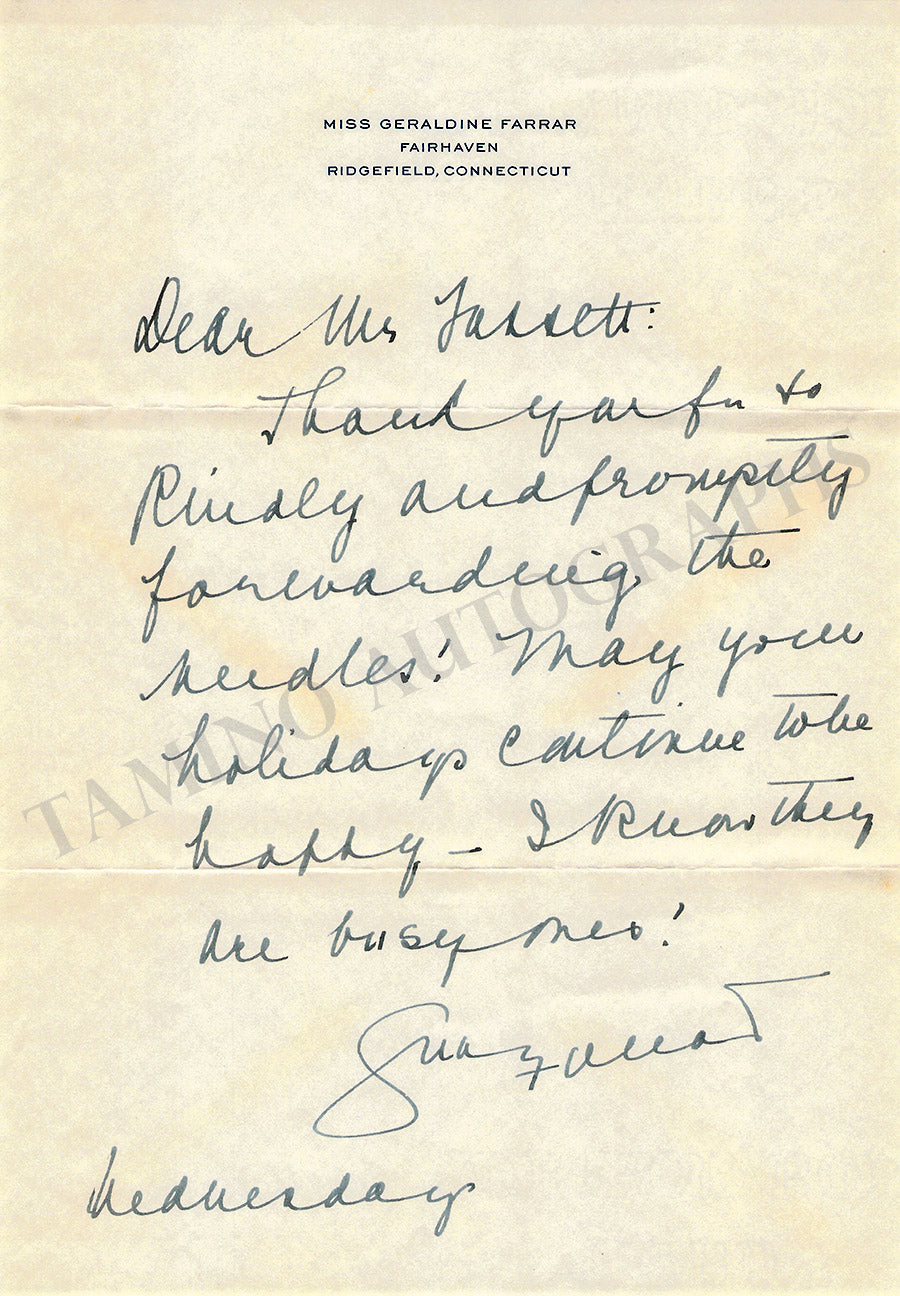 MISS GERALDINE FARRAR
FAIRHAVEN
RIDGEFIELD, CONNECTICUT
Dear Mr Fassett:
Thank you for so
kindly and promptly
forwarding the
needles! May your
holidays continue to be
happy – I know they
are busy ones!
Farrar
Wednesday
TAMINO AUTOGRAPHS